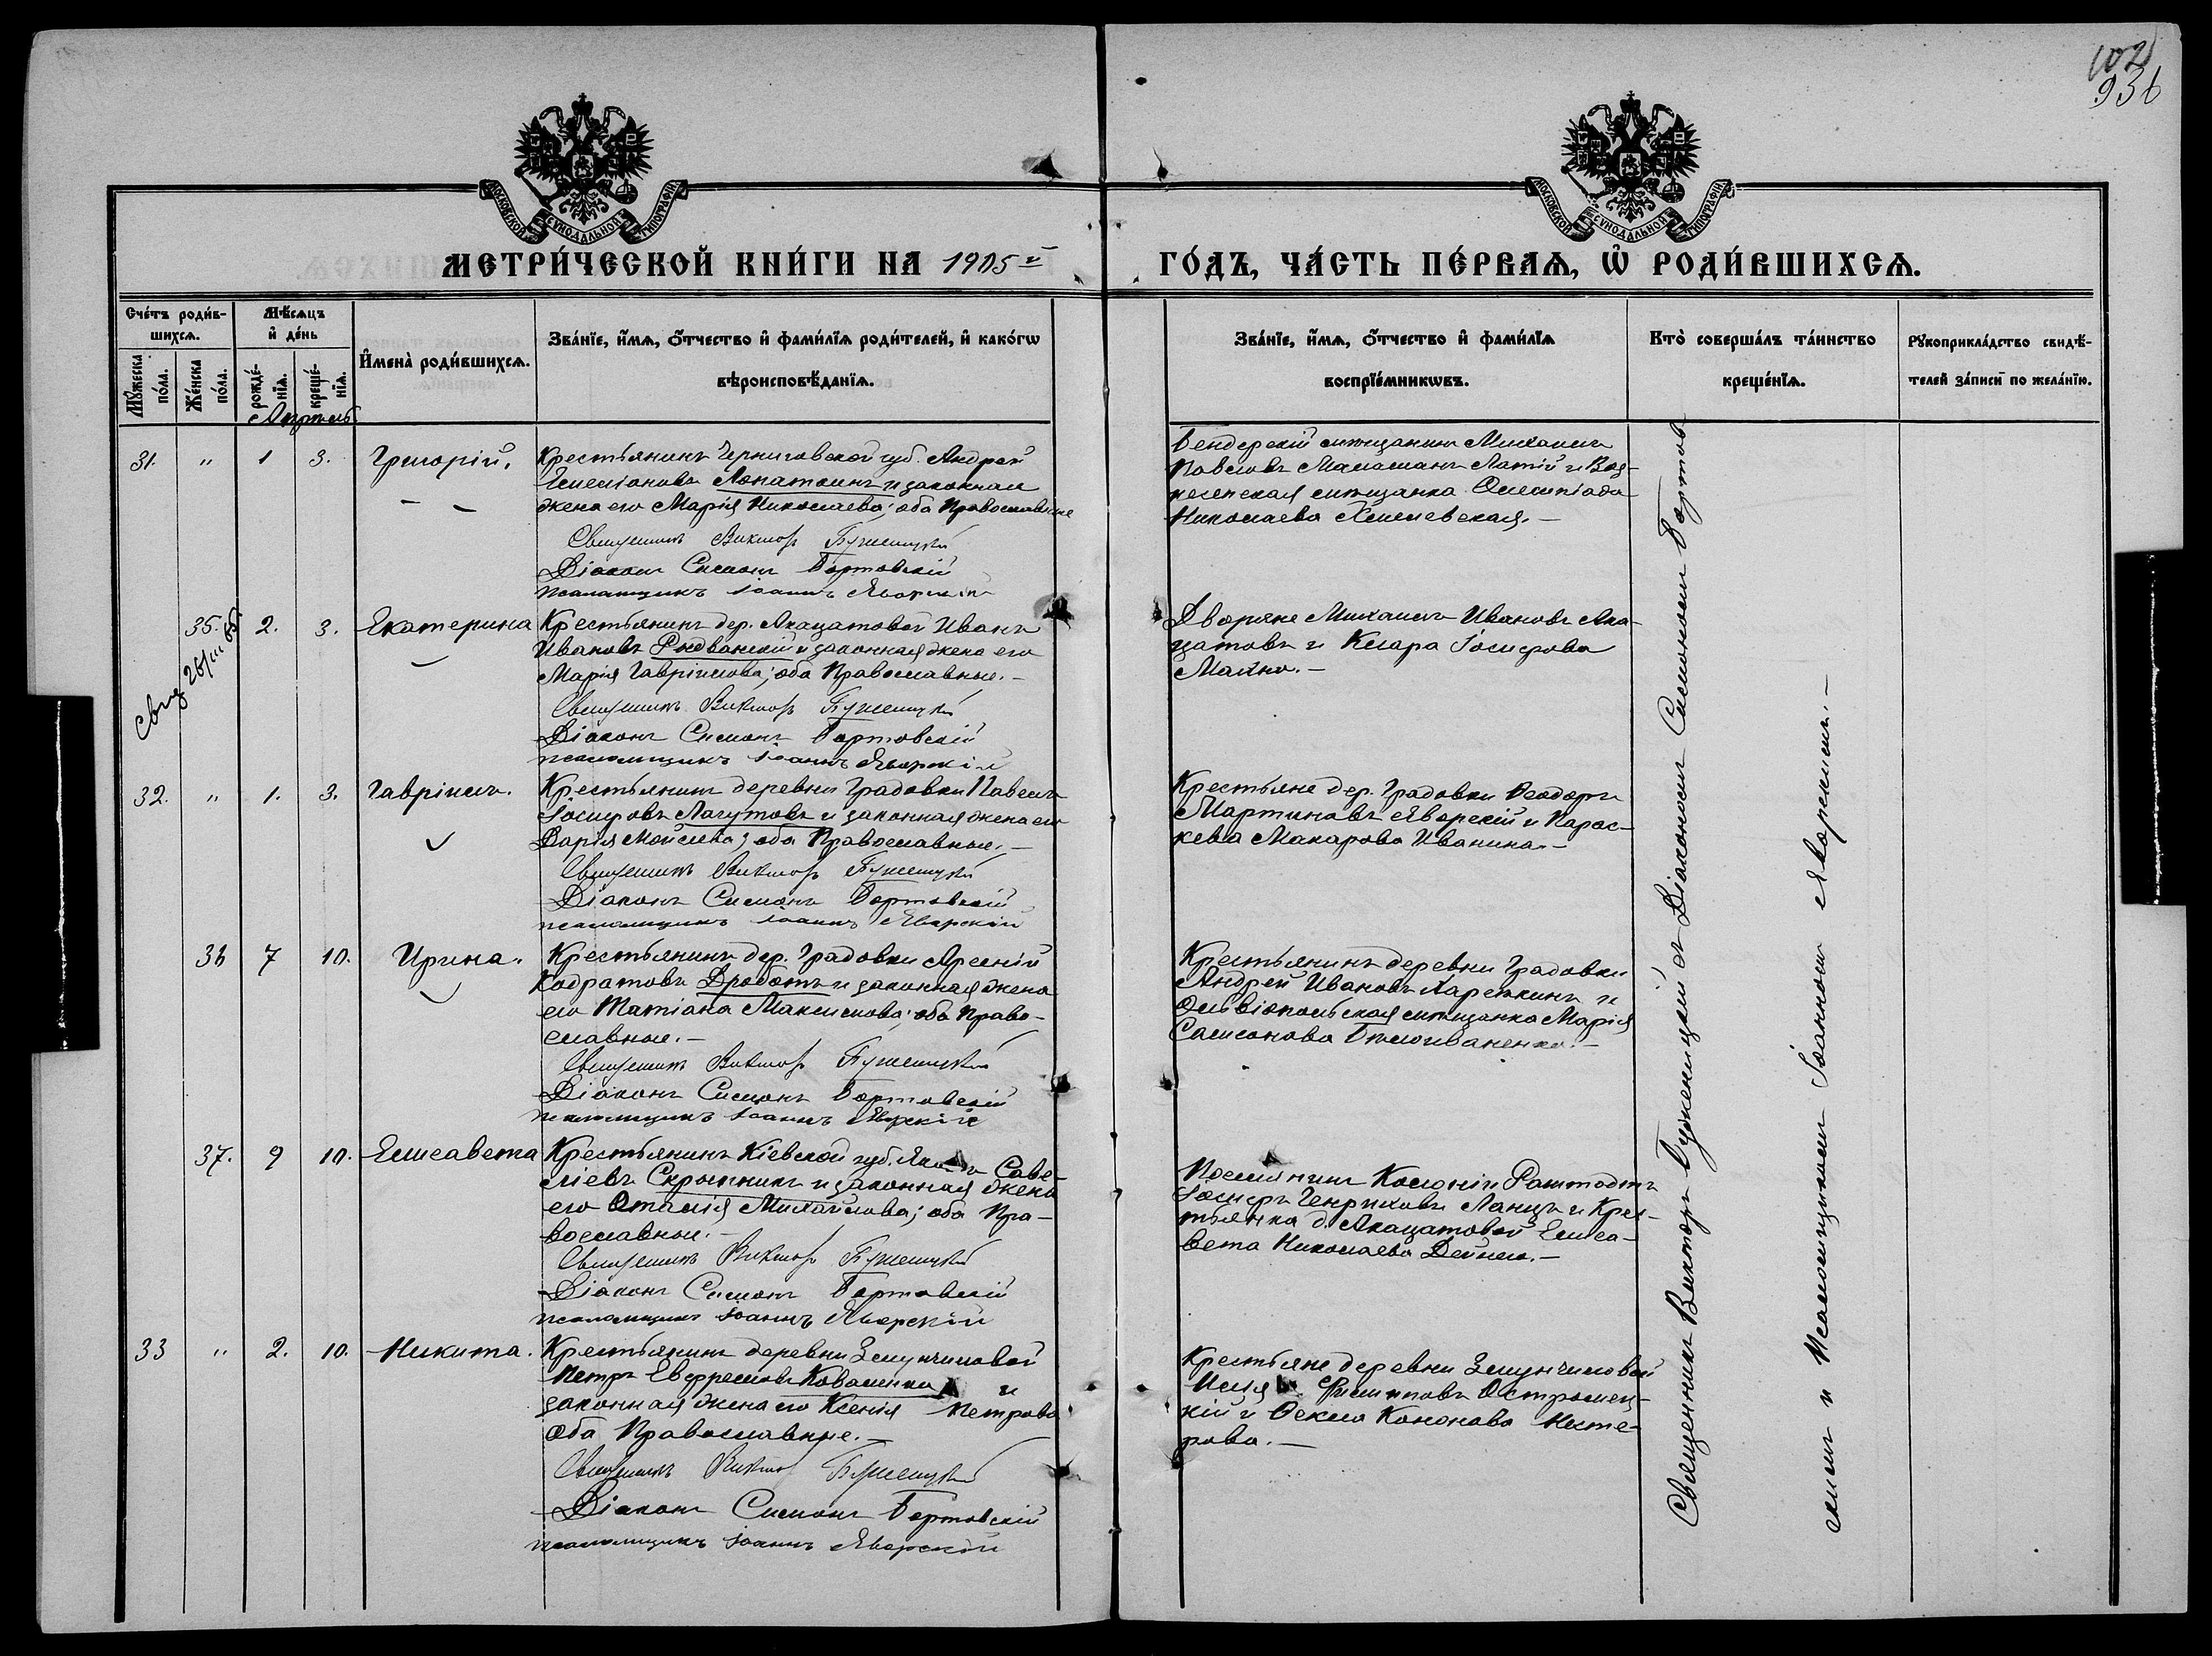 102
936
МОСКОВСКОЙ СѴНОДАЛЬНОЙ ТИПОГРАФІИ
МОСКОВСКОЙ СѴНОДАЛЬНОЙ ТИПОГРАФІИ
МЕТРИ́ЧЕСКОЙ КНИ́ГИ НА 1905 й
ГО́ДЪ, ЧА́СТЬ ПЕ́РВАѦ, Ѡ҆ РОДИ́ВШИХСѦ.
Сче́тъ роди́в-
шихсѧ.
Мꙋ́жеска по́ла.
Же́нска по́ла.
Мѣ́сѧцъ
и҆ де́нь
рожде́-нїѧ.
креще́-нїѧ.
И҆мена̀ роди́вшихсѧ.
Зва́нїе, и҆́мѧ, ѻ҆́тчество и҆ фами́лїѧ роди́телей, и҆ како́гѡ
вѣроисповѣ́данїѧ.
Зва́нїе, и҆́мѧ, ѻ҆́тчество и҆ фами́лїѧ
воспрїе́мникѡвъ.
Кто̀ соверша́лъ та́инство
креще́нїѧ.
Рꙋкоприкла́дство свидѣ́-
телей за́писи по жела́нїю.
Апрѣль
31. " 1 3. Григорій.
Крестьянинъ Черниговской губ. Андрей
Лопаткинъ и законная
жена его Марія Николаева; оба Православные
Священникъ Викторъ Бужницкій
Діаконъ Симонъ Бортовскій
псаломщикъ Іоаннъ Яворскій
Бендерскій мѣщанинъ Михаилъ
Павловъ и Воз-
несенская мѣщанка Олимпіада
Николаева Хмелевская. —
35. 2. 3. Екатерина
Крестьянинъ дер. Акацатовой Иванъ
Ивановъ Рыдванскій и законная жена его
Марія Гавріилова; оба Православные. —
Священникъ Викторъ Бужницкій
Діаконъ Симонъ Бортовскій
псаломщикъ Іоаннъ Яворскій
Дворяне Михаилъ Ивановъ Ака-
цатовъ и Клара Іосифова
32. " 1. 3. Гавріилъ.
Крестьянинъ деревни Градовки Павелъ
Іосифовъ Лагутовъ и законная жена его
Дарія Мойсеева; оба Православные. —
Священникъ Викторъ Бужницкій
Діаконъ Симонъ Бортовскій
псаломщикъ Іоаннъ Яворскій
Крестьяне дер. Градовки Ѳеодоръ
Мартиновъ Яворскій и Парас-
кева Макарова Иванина. —
36 7 10. Ирина.
Крестьянинъ дер. Градовки Арсеній
Кодратовъ Дроботъ и законная жена
его Татіана Максимова; оба Право-
славные. —
Священникъ Викторъ Бужницкій
Діаконъ Симонъ Бортовскій
псаломщикъ Іоаннъ Яворскій
Крестьянинъ деревни Градовки
Андрей Ивановъ Карежкинъ и
Ольвіопольская мѣщанка Марія
Самсонова Бѣлоиваненко. —
37. 9 10. Елисавета
Крестьянинъ Кіевской губ. Саве-
ліевъ Скрыпникъ и законная жена
его Оталія Михайлова; оба Пра-
вославные. —
Священникъ Викторъ Бужницкій
Діаконъ Симонъ Бортовскій
псаломщикъ Іоаннъ Яворскій
Поселянинъ Колоніи Раштадтъ
Іосифъ Генриховъ Ланцъ и Крес-
тьянка д. Акацатовой Елиса-
вета Николаева Дейнега. —
33 " 2. 10. Никита.
Крестьянинъ деревни Зелунчиловой
Петръ Евфремовъ Коваленко и
законная жена его Ксенія Петрова
оба Православные. —
Священникъ Викторъ Бужницкій
Діаконъ Симонъ Бортовскій
псаломщикъ Іоаннъ Яворскій
Крестьяне деревни Зелунчиловой
Илія Филипповъ Остромец-
кій и Ѳекла Кононова Несте-
рова. —
Священникъ Викторъ Бужницкій съ Діакономъ Симономъ Бортов-
скимъ и Псаломщикомъ Іоанномъ Яворскимъ. —